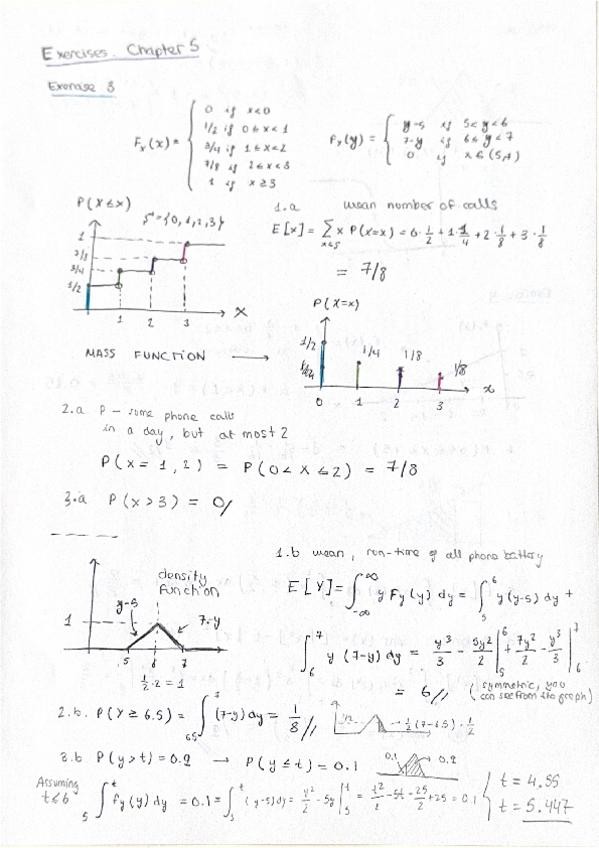 Exercises. Chapter 5
Exercise 3
F_X(x) = { 0 if x<0
1/2 if 0≤x<1
3/4 if 1≤x<2
7/8 if 2≤x<3
1 if x≥3
f_Y(y) = { y-5 if 5<y<6
7-y if 6≤y<7
0 if x∉(5,7)
P(X≤x)
S={0,1,2,3}
1
7/8
3/4
1/2
1 2 3 X
1.a mean number of calls
E[x] = ∑ x P(X=x) = 0·1/2 + 1·1/4 + 2·1/8 + 3·1/8
x∈S
= 7/8
P(X=x)
1/2
1/4
1/4 1/8 1/8
0 1 2 3 x
MASS FUNCTION →
2.a P - some phone calls
in a day, but at most 2
P(X=1,2) = P(0<X≤2) = 7/8
3.a P(X>3) = 0//
1.b mean, run-time of all phone battery
density
function
y-5
7-y
1
5 6 7
1/2·2=1
E[Y] = ∫_{-∞}^{∞} y F_Y(y) dy = ∫_5^6 y(y-5) dy +
∫_6^7 y(7-y) dy = y³/3 - 5y²/2 |_5^6 + 7y²/2 - y³/3 |_6^7
= 6// (symmetric, you
can see from the graph)
2.b. P(Y≥6.5) = ∫_{6.5}^7 (7-y) dy = 1/8 //
1/2
→ 1/2 (7-6.5)·1/2
3.b P(y>t) = 0.9 → P(y≤t) = 0.1
0.1 0.9
Assuming
t≤6
∫_5^t f_Y(y) dy = 0.1 = ∫_5^t (y-5) dy = y²/2 - 5y |_5^t = t²/2 - 5t - 25/2 + 25 = 0.1
t = 4.55
t = 5.447